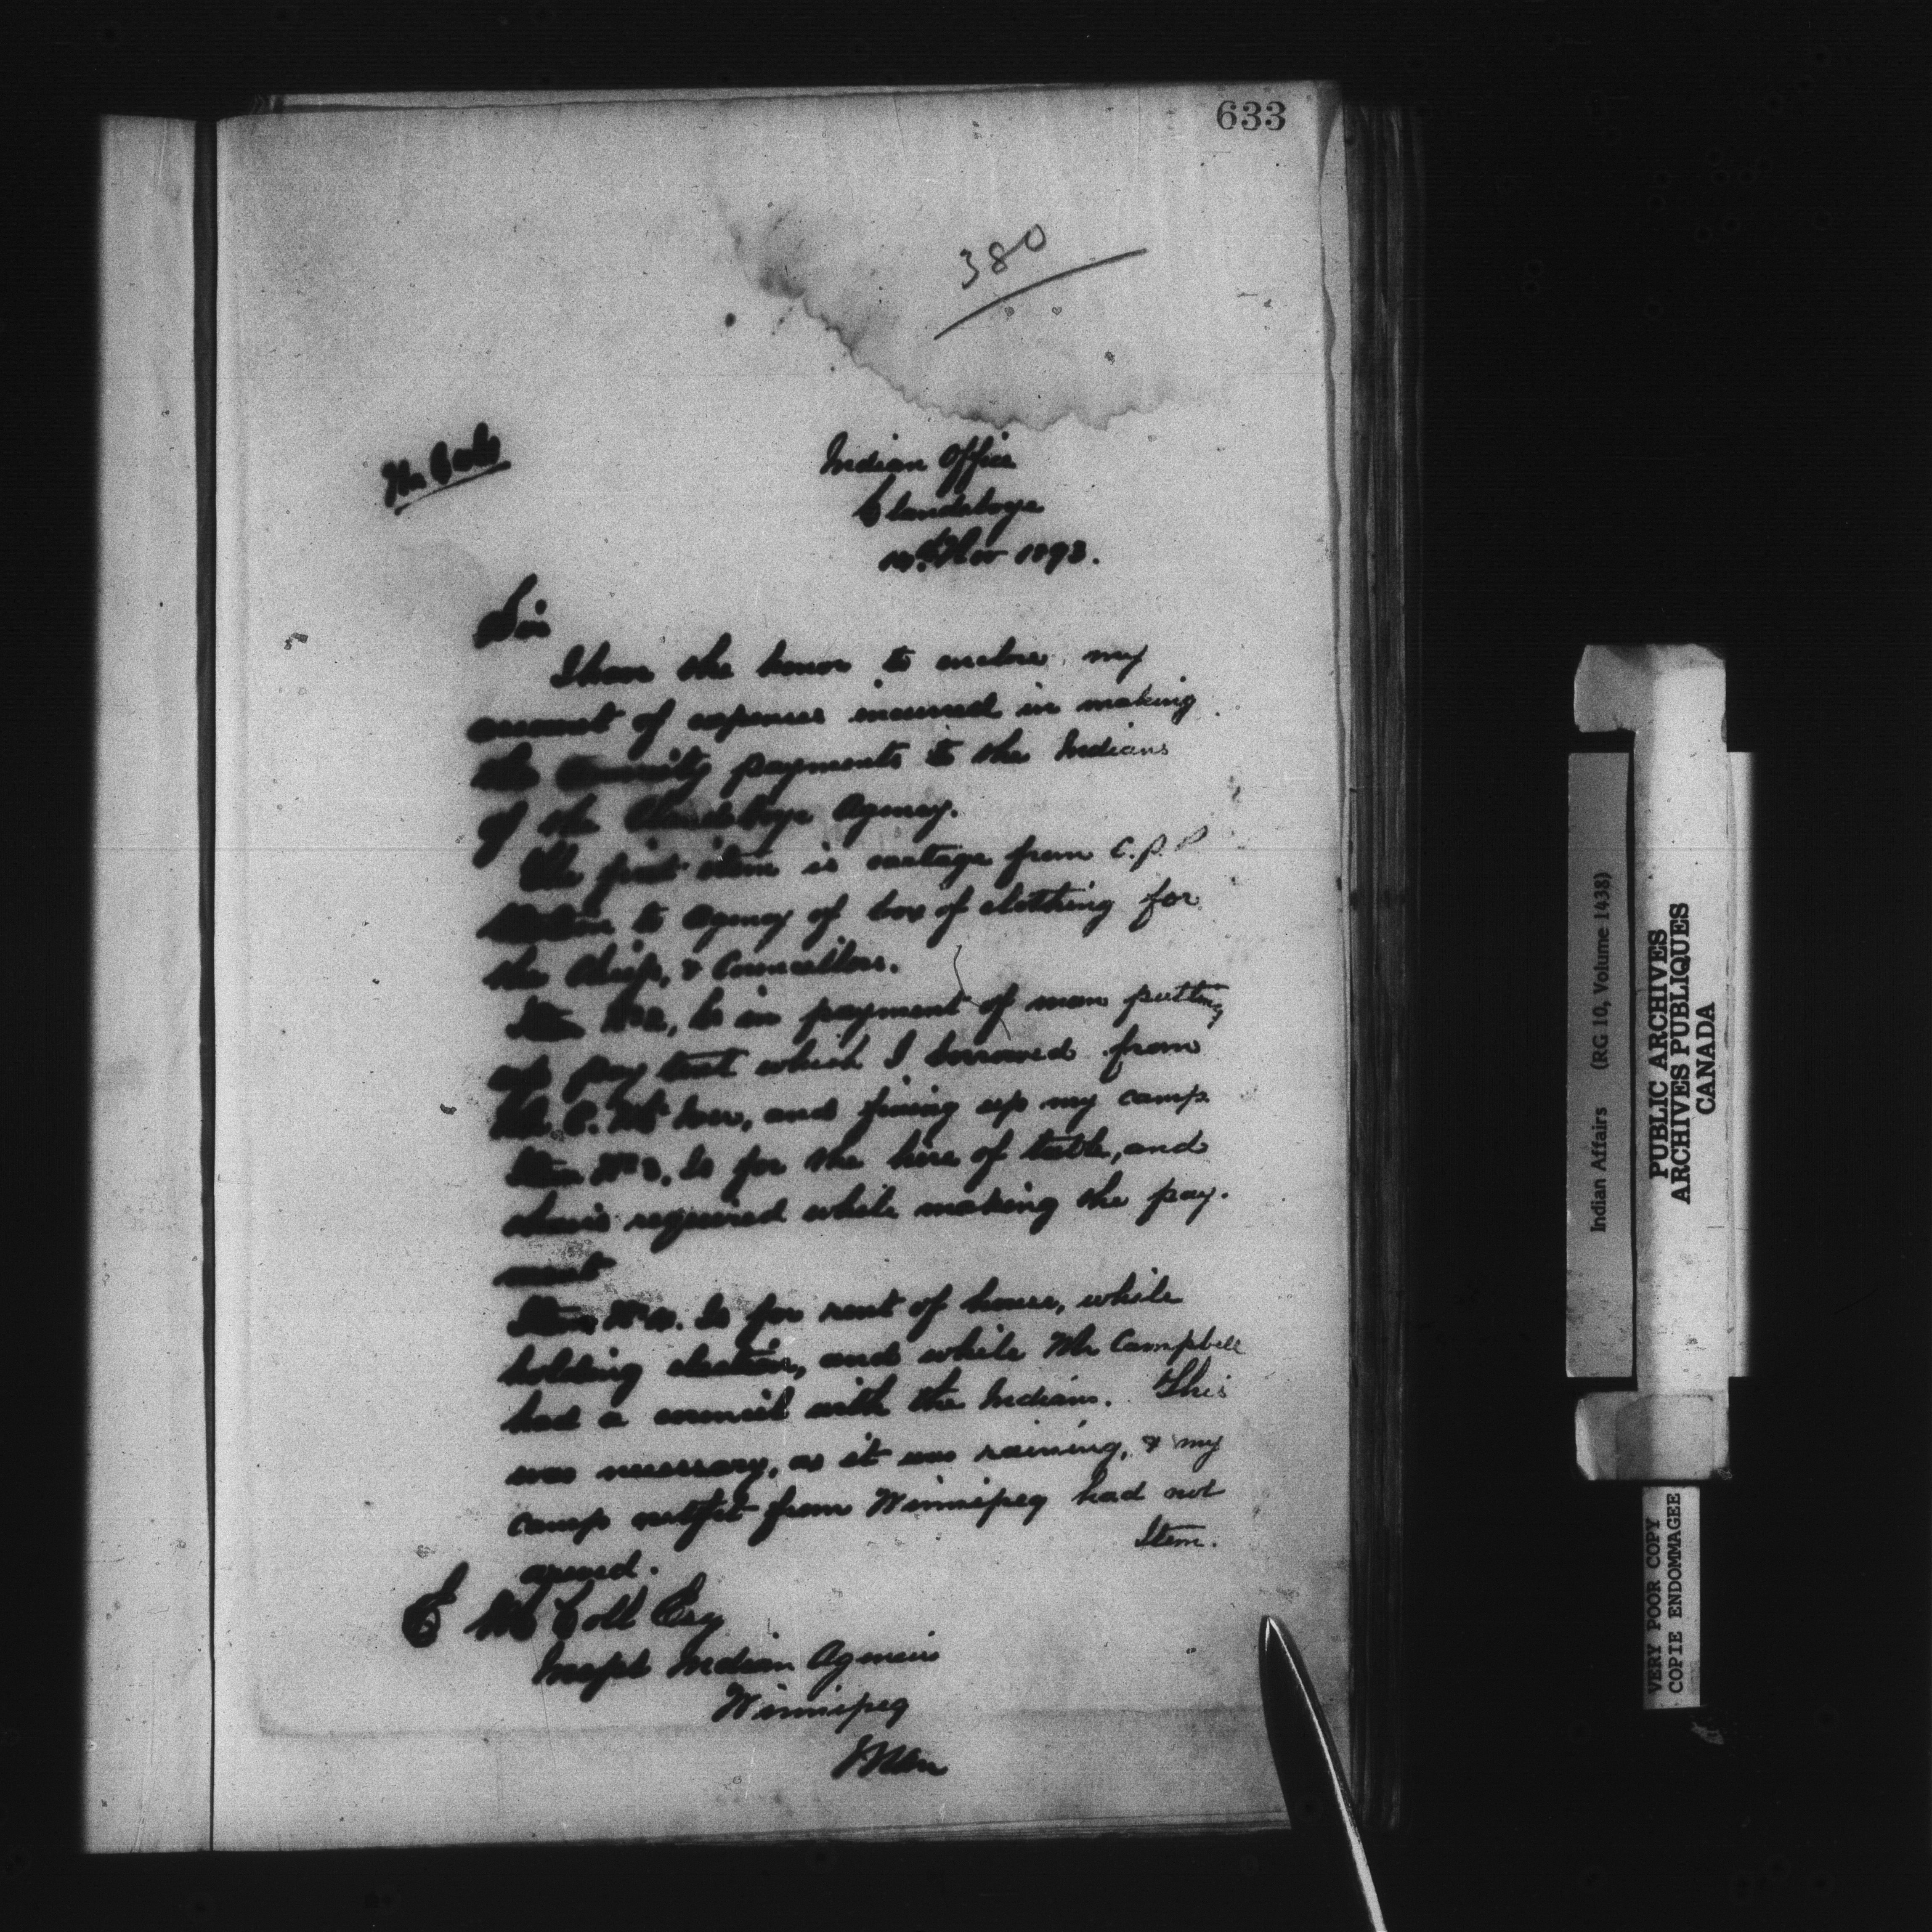 633
380
Indian Office
Clandeboye
Nov 1893.
Sir
I have the honor to enclose my
account of expenses incurred in making
the Annuity payments to the Indians
of the Clandeboye Agency.
The first item is cartage from C.P.
Station to Agency of box of clothing for
the Chiefs, & Councillors.
Item No 2, Is in payment of man putting
up pay tent which I borrowed from
Mr and fixing up my camp
Item No 3, Is for the hire of table, and
chairs required while making the pay-
ment
Item No 4. Is for rent of house, while
holding election, and while Mr Campbell
had a council with the Indians. This
was necessary, as it was raining, & my
camp outfit from Winnipeg had not
arrived.
Item.
E McColl Esq
Inspt Indian Agencies
Winnipeg
Man
Indian Affairs (RG 10, Volume 1438)
PUBLIC ARCHIVES
ARCHIVES PUBLIQUES
CANADA
VERY POOR COPY
COPIE ENDOMMAGEE